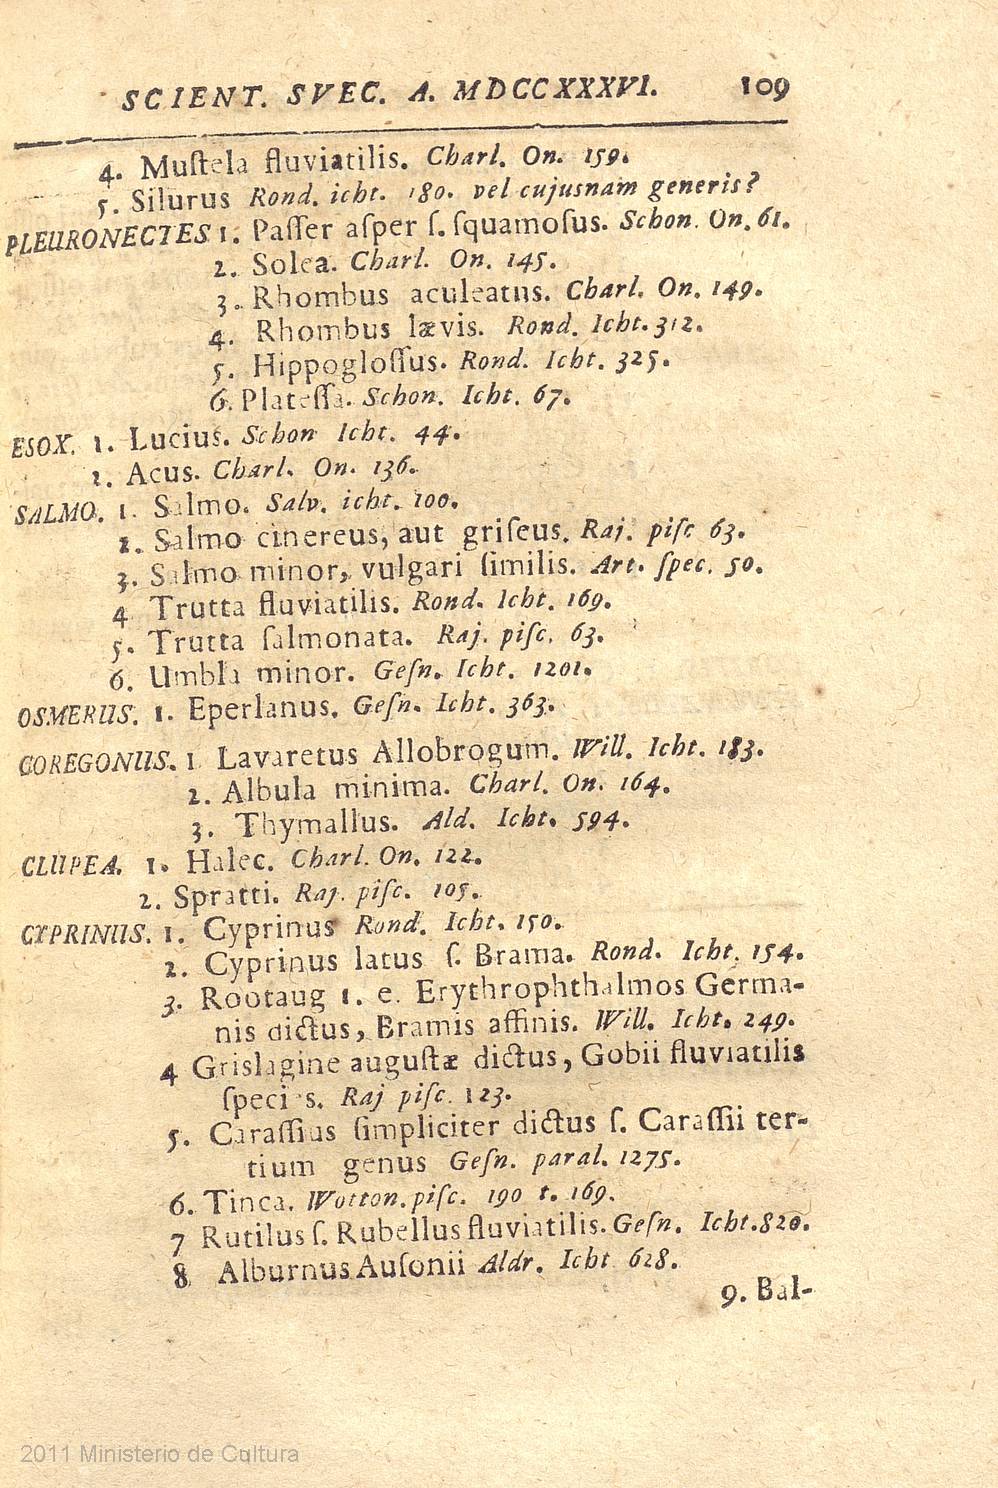 SCIENT. SVEC. A. MDCCXXXVI. 109
4. Muſtela fluviatilis. Charl. On. 159.
5. Silurus Rond. icht. 180. vel cujusnam generis?
PLEURONECTES 1. Paſſer aſper ſ. ſquamoſus. Schon. On. 61.
2. Solea. Charl. On. 145.
3. Rhombus aculeatus. Charl. On. 149.
4. Rhombus lævis. Rond. Icht. 312.
5. Hippogloſſus. Rond. Icht. 325.
6. Plateſſa. Schon. Icht. 67.
ESOX. 1. Lucius. Schon Icht. 44.
2. Acus. Charl. On. 136.
SALMO. 1. Salmo. Salv. icht. 100.
2. Salmo cinereus, aut griſeus. Raj. piſc 63.
3. Salmo minor, vulgari ſimilis. Art. ſpec. 50.
4 Trutta fluviatilis. Rond. Icht. 169.
5. Trutta ſalmonata. Raj. piſc. 63.
6. Umbla minor. Geſn. Icht. 1201.
OSMERUS. 1. Eperlanus. Geſn. Icht. 363.
COREGONUS. 1 Lavaretus Allobrogum. Will. Icht. 183.
2. Albula minima. Charl. On. 164.
3. Thymallus. Ald. Icht. 594.
CLUPEA. 1. Halec. Charl. On. 122.
2. Spratti. Raj. piſc. 105.
CYPRINUS. 1. Cyprinus Rond. Icht. 150.
2. Cyprinus latus ſ. Brama. Rond. Icht. 154.
3. Rootaug 1. e. Erythrophthalmos Germa-
nis dictus, Bramis affinis. Will. Icht. 249.
4 Grislagine auguſtæ dictus, Gobii fluviatilis
ſpeci s. Raj piſc. 123.
5. Caraſſius ſimpliciter dictus ſ. Caraſſii ter-
tium genus Geſn. paral. 1275.
6. Tinca. Wotton. piſc. 190 t. 169.
7 Rutilus ſ. Rubellus fluviatilis. Geſn. Icht. 820.
8 Alburnus Auſonii Aldr. Icht 628.
9. Bal-
2011 Ministerio de Cultura